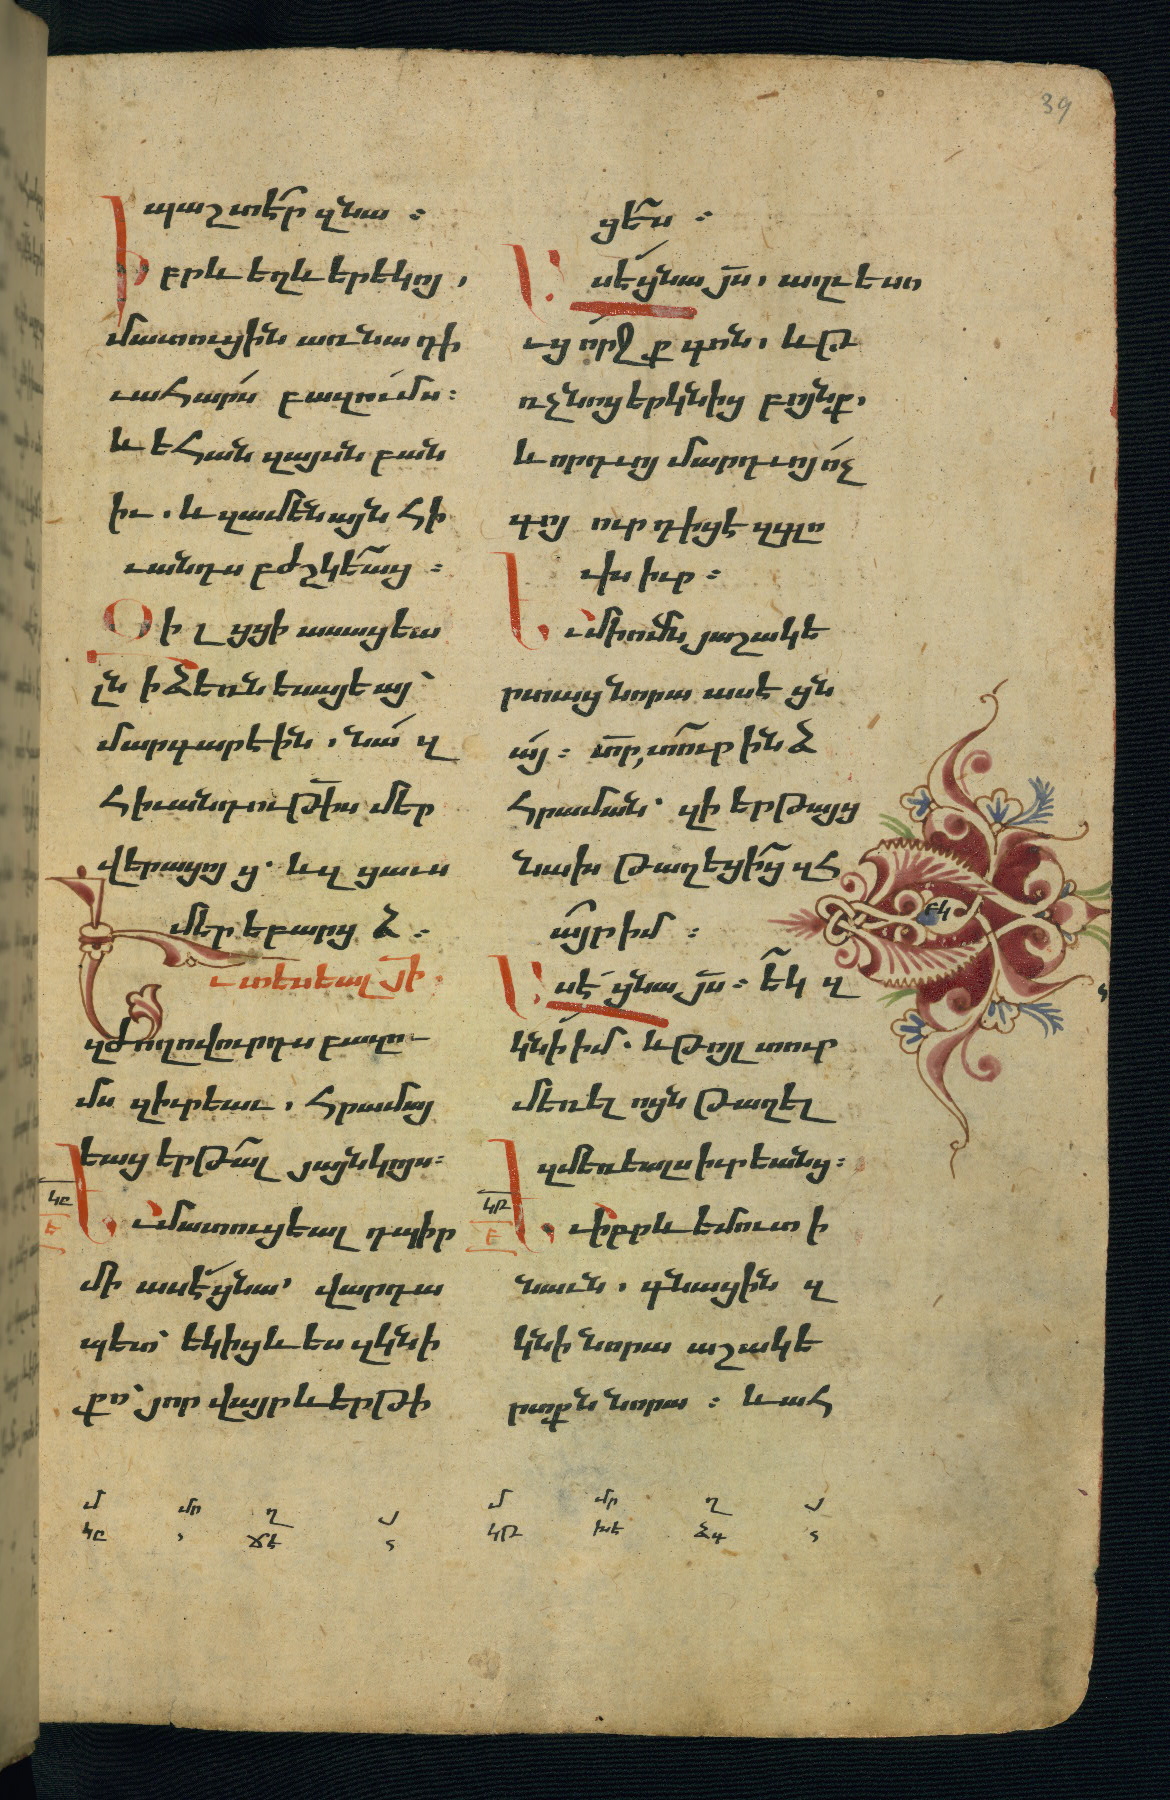 39
պաշտէր զնա ։
Իբրև եղև երեկոյ,
մատուցին առ նա դի
ւահարս բազումս։
և եհան զայսն բան
իւ. և զամենայն հի
ւանդս բժշկեաց ։
Օի լցցի ասացեա
լն ի ձեռն եսայեայ՝
մարգարէին, նա զ
հիւանդութիս մեր
վերացոյց. և զցաւս
մեր եբարձ ։
Ւ տեսեալ յի.
զժողովուրդս բազու
մս զիւրեաւ, հրամայ
եաց երթալ յայնկոյս։
Եւ մատուցեալ դպիր
մի ասէ ցնա՝ վարդա
պետ՝ եկից և ես զկնի
քո՝ յոր վայր և երթի
ցես ։
Ասէ ցնա յս, աղուեսո
ւց որջք գոն, և թ
ռչնոց երկնից բոյնք,
և որդւոյ մարդոյ ոչ
գոյ ուր դիցէ զգլո
ւխ իւր ։
Եւ միւսմն յաշակե
րտաց նորա ասէ ցն
ա. տր, տուր ինձ
հրաման՝ զի երթայց
նախ թաղեցից զհ
այր իմ ։
Ասէ ցնա յս։ եկ զ
կնի իմ. և թոյլ տուր
մեռելոցն թաղել
զմեռեալս իւրեանց։
Եւ իբրև եմուտ ի
նաւն, գնացին զ
կնի նորա աշակե
րտքն նորա ։ և ահ
ԿԸ
Ե
ԿԹ
Ե
բկ
մ մր ղ յ
կը ճէ
մ մր ղ յ
կթ խէ ձգ